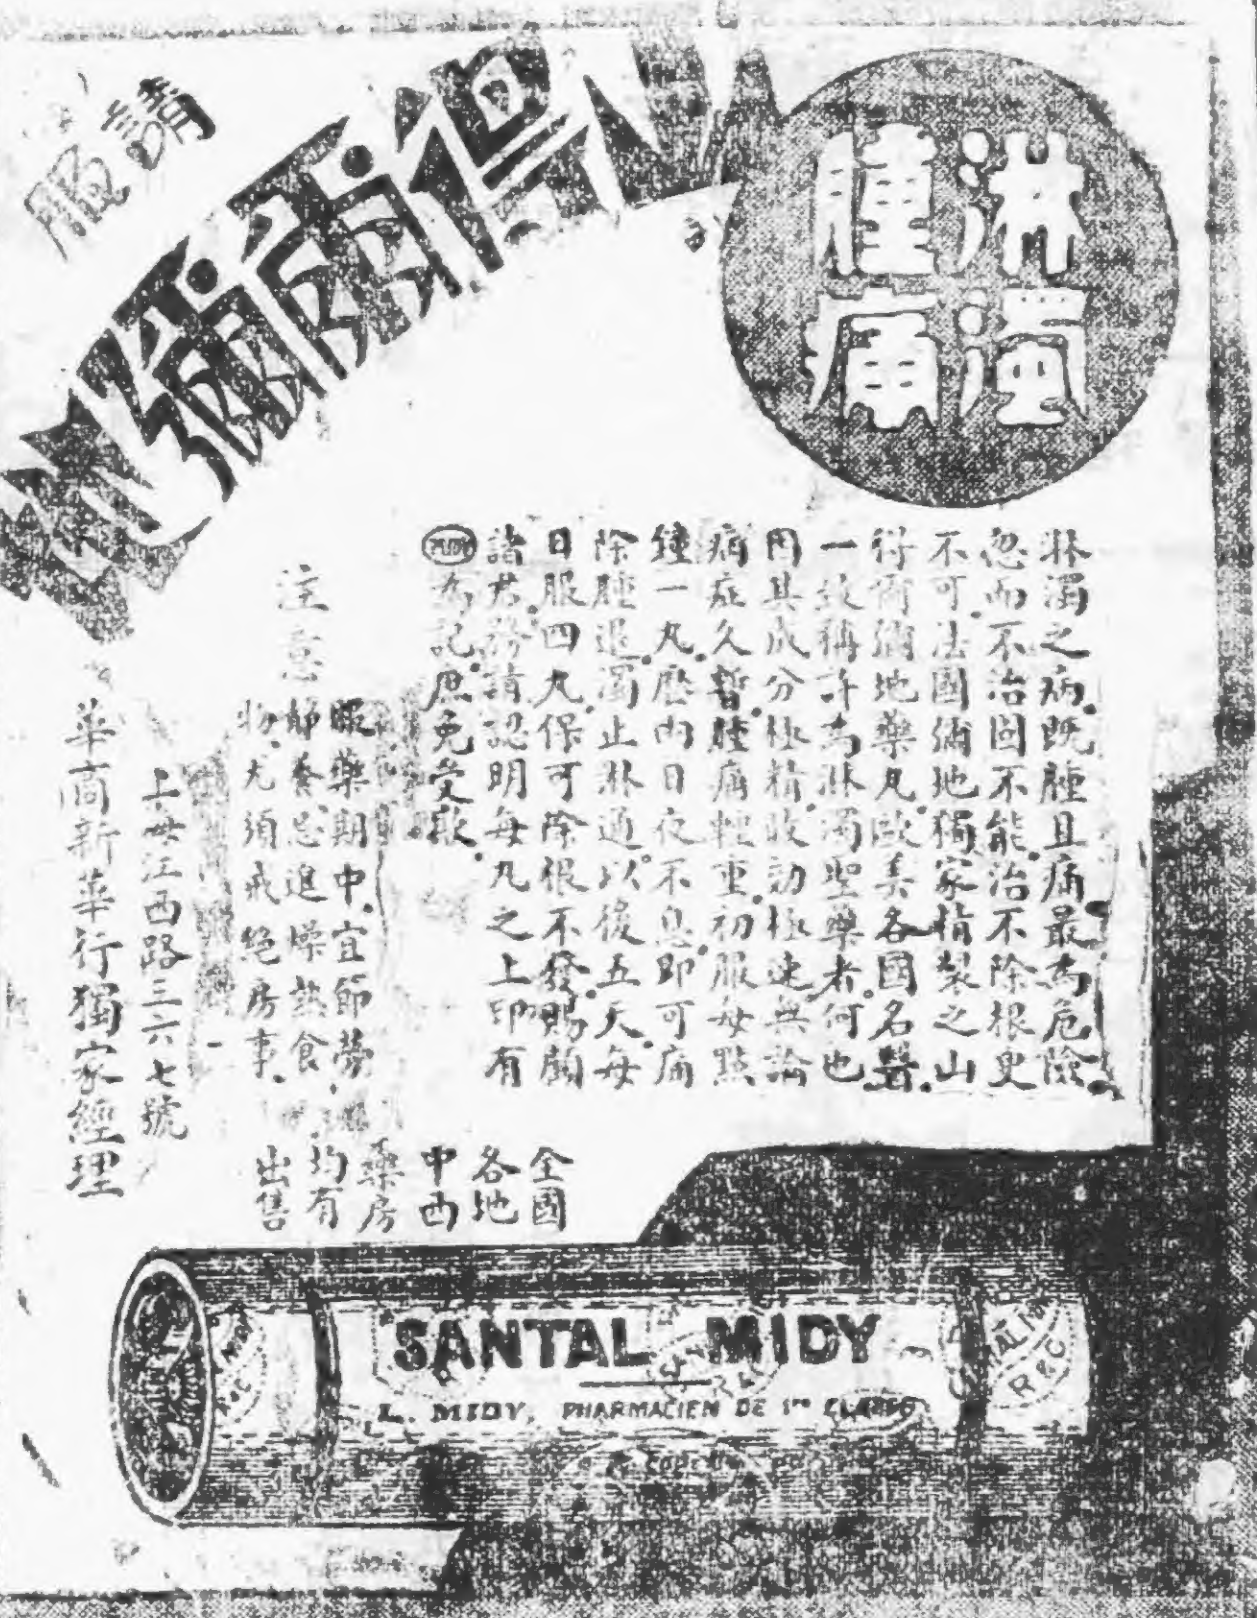 淋濁
腫痛
請服
淋濁之病。既腫且痛。最為危險。
忽而不治。固不能。治不除根。更
不可。法國彌地獨家精製之山
得爾彌地藥丸。歐美各國名醫。
一致稱許為淋濁聖藥者。何也
因其成分極精。收効極速。無論
病症久暫。腫痛輕重。初服每點
鐘一丸。歷四日夜不息。即可痛
除腫退。濁止淋通。以後五天。每
日服四丸。保可除根不發。賜顧
諸君。務請認明每丸之上印有
MIDY為記。庶免受欺。
注意
服藥期中。宜節勞
靜養。忌進燥熱食
物。尤須戒絕房事。
上海江西路三六七號
華商新華行獨家經理
全國
各地
中西
藥房
均有
出售
SANTAL MIDY
L. MIDY, PHARMACIEN DE 1re CLASSE